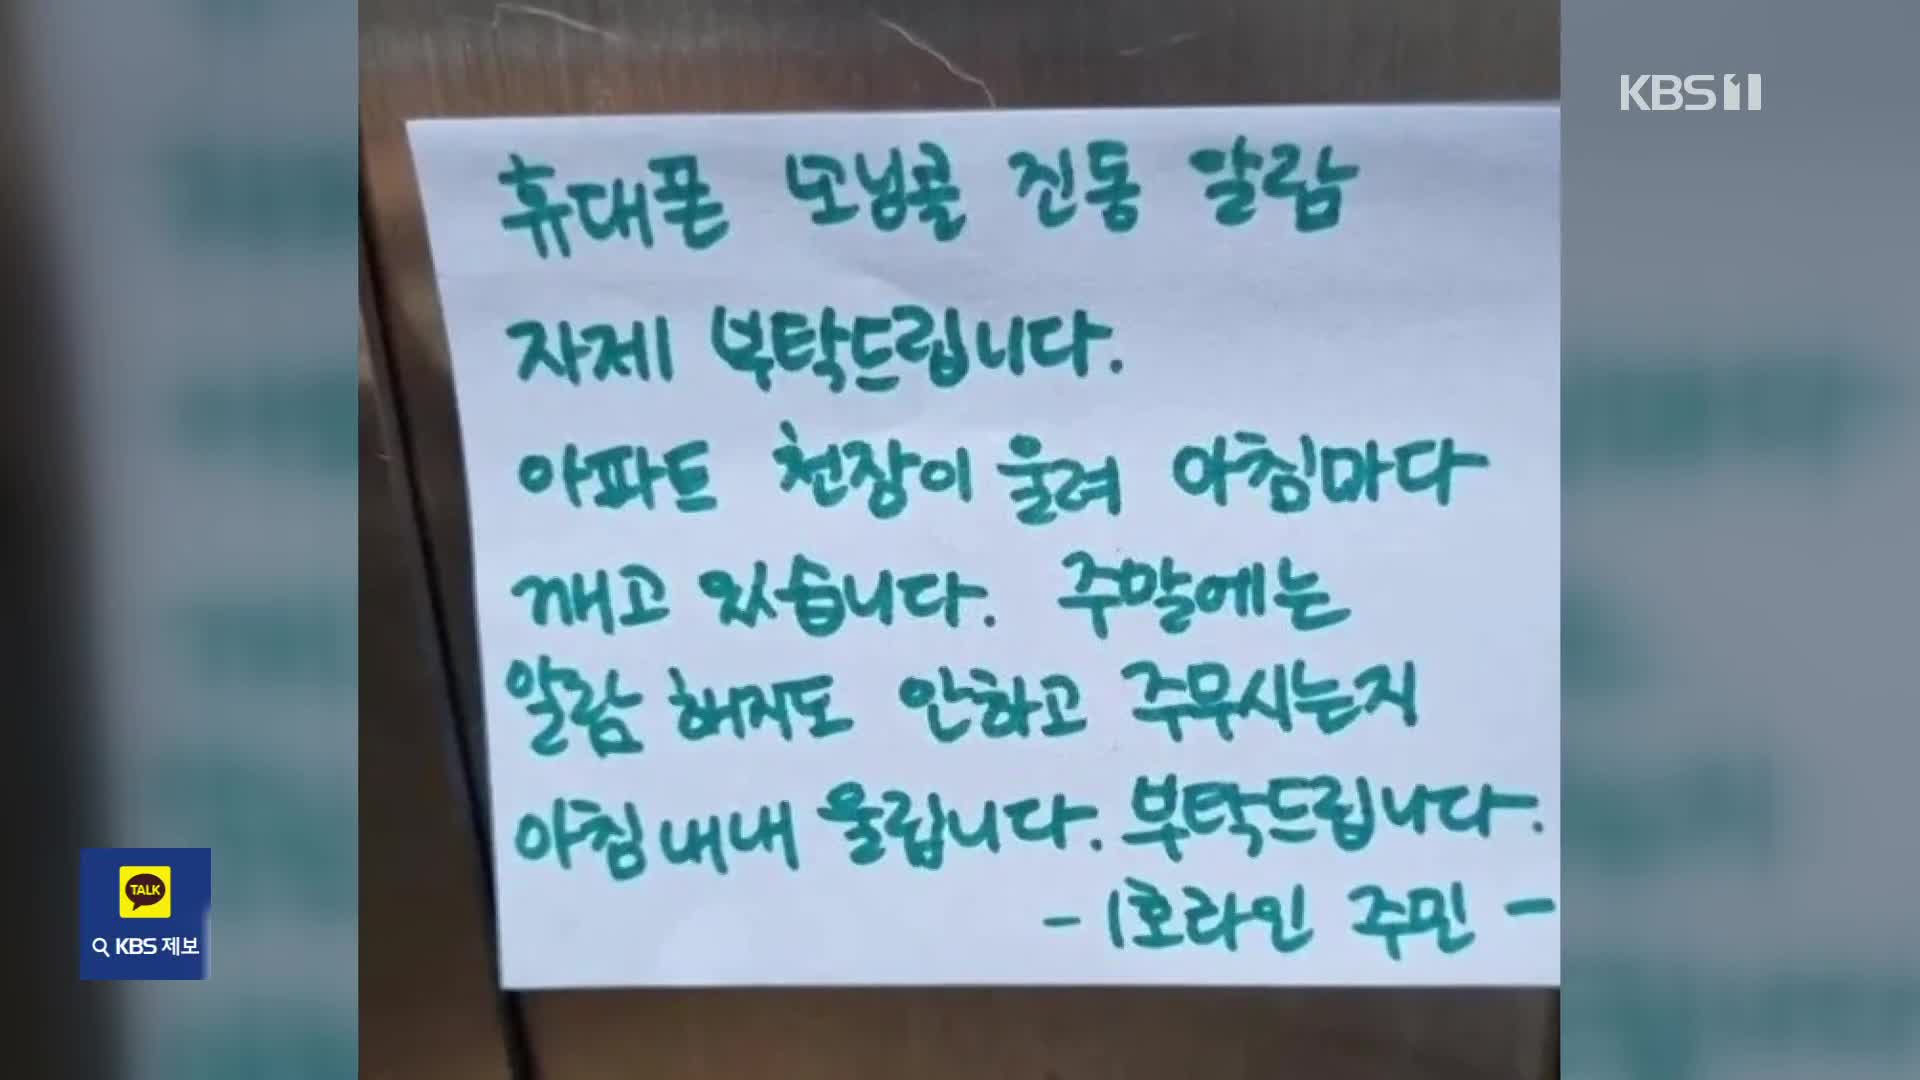 KBS 1
휴대폰 모닝콜 진동 알람
자제 부탁드립니다.
아파트 천장이 울려 아침마다
깨고 있습니다. 주말에는
알람 해지도 안하고 주무시는지
아침내내 울립니다. 부탁드립니다.
- 1호라인 주민 -
TALK
KBS 제보